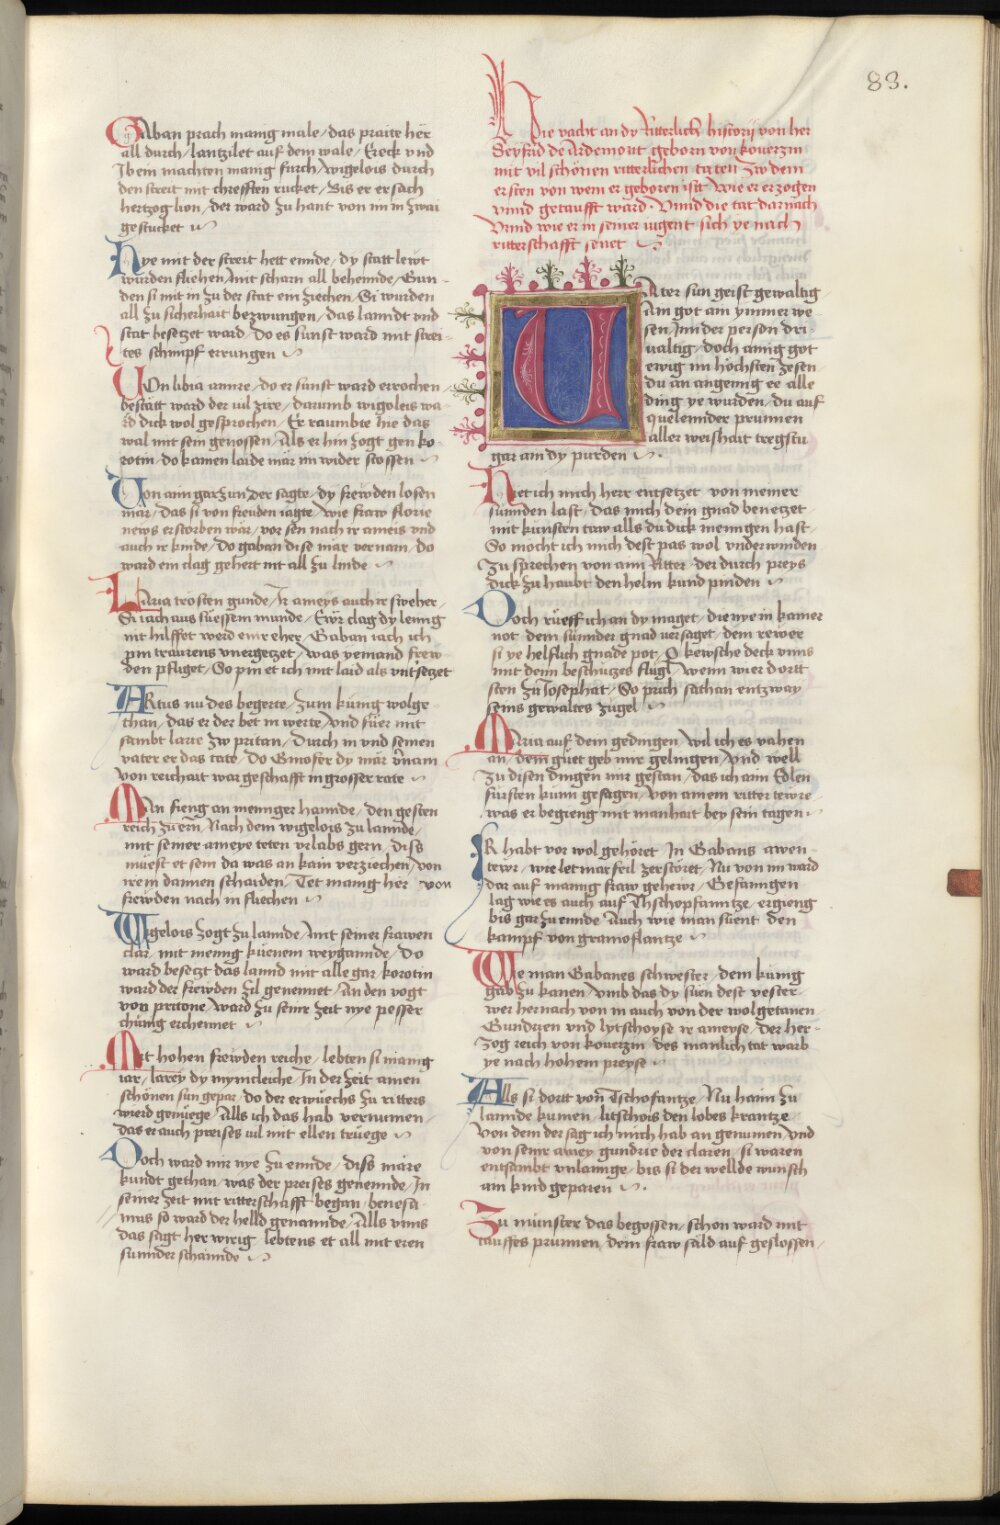 83.
Gaban prach manig male / das praite her
all durch / lantzilet auf dem wale / Ereck vnd
Ibein machten manig furch / wigelois durch
den streit mit chrefften rucket / Bis er ersach
hertzog lion / der ward zu hant von im in zwai
gestucket
Hye mit der streit hett ennde / dy statt lewt
wurden fliehen / mit scharn all behennde / Gun-
den si mit in zu der stat ein ziechen / Si wurden
all zu sicherhait bezwungen / das lanndt vnd
stat besetzet ward / do es sunst ward mit strei-
tes schimpf errungen
Von libia amire / do er sunst ward errochen
bestätt ward der vil zire / darumb wigoleis wa-
rd dick wol gesprochen / Er raumbte hie das
wal mit sein genossen / Als er hin zogt gen ko-
rotin / do kamen laide mär im wider stossen
Von ainn garzun der sagte / dy frewden losen
mär / das si von freuden iagte / wie fraw florie
news erstorben wär / vor sen nach ir ameis vnd
auch ir kinde / Do gaban dise mär vernam / do
ward ein clag gehert nit all zu linde
Laria trösten gunde / Ir ameys auch ir sweher /
Si iach aus süessem munde / Ewr clag dy lenng
nit hilffet werd einr eher / Gaban iach ich
pin traurens vnergetzet / was yemand frew-
den pfliget / So pin et ich mit laid als vntsetzet
Artus nu des begerte / zum künig wolge
than / das er der bet in werte / vnd füer mit
sambt larie zw pritan / durch in vnd seinen
vater er das tate / do Gmoser dy mär vernam
von reichait war geschafft in grosser rate
Man fieng an menniger hannde / den gesten
reich zu ern / Nach dem wigelois zu lannde /
mit seiner ameye teten vrlabs gern / diss
müest et sein da was an kain verziechen / von
irem dannen scharden / Tet manig her von
frewden nach in fliechen
Wigelois zogt zu lannde / mit seiner frawen
clar / mit menng küenem weygannde / Do
ward besetzt das lannd mit alle gar / korotin
ward der frewden zil genennet / An den vogt
von pritone / ward zu seinr zeit nye pesser
chünig erchennet
Mit hohen frewden reiche / lebten si manig
iar / larey dy mynneleiche / In der zeit ainen
schönen sun gepar / do der erwüechs zu ritters
wierd genüege / Alls ich das hab vernumen /
das er auch preises vil mit ellen trüege
Doch ward mir nye zu ennde / diss märe
kundt gethan / was der preises genennde / In
seiner zeit mit ritterschafft began / benefa-
mus so ward der helld genannde / Alls vnns
das sagt her wirig / lebtens et all mit eren
sunnder schannde
Hie vacht an dy Ritterlich histori von her
Seyfrid de Ardemont geborn von kouerzin
mit vil schönen ritterlichen taten Zw dem
ersten von wem er geboren ist wie er erzogen
vnnd getaufft ward · Vnnd die tat darnach
Vnnd wie er in seiner iugent sich ye nach
ritterschafft senet
Vater sun geist gewaltig
Ain got ain ymmer we-
sen / Inn der person dri-
ualtig / doch ainig got
ewig im höchsten zesen
du an angenng ee alle
ding ye wurden / du auf
quelennder prunnen
aller weishait tregstu
gar ain dy purden
Hiet ich mich herr entsetzet von meiner
sünnden last / das mich dein gnad benetzet
mit künsten taw alls du dick mennigen hast
So mocht ich mich dest pas wol vnderwinden
Zu sprechen von ainn Ritter / der durch preys
dick zu haubt den helm kund pinden
Doch rüeff ich an dy maget / die nye in kainer
not / dem sünnder gnad versaget / dem rewer
si ye helflich gnade pot / O kewsche deck vnns
mit deinn beschützes flügl / wenn wier dortt
sten zu Josephat / So prich sathan entzway
seins gewaltes zügel
Maria auf dein gedingen / wil ich es vahen
an / dein güet geb mir gelingen / Vnd well
zu disen dingen mir gestan / das ich ain Edlen
fürsten künn gesagen / von ainem ritter tewre
was er begieng mit manhait bey sein tagen
Ir habt vor wol gehöret In Gabans awen-
tewr / wie let marfeil zerstöret / Nu von im ward
dar auf mannig fraw gehewr / Gefanngen
lag wie es auch auf Tschopfanntze / ergieng
bis gar zu ennde Auch wie man süent den
kampf von gramoflantze
Wie man Gabanes schwester / dem künig
gab zu kanen / vmb das dy süen dest vester
wer hernach von in auch von der wolgetanen
Gundrien vnd lytschoyse ir ameyse / der her-
zog reich von kouerzin / des manlich tat warb
ye nach hohem preyse
Alls si dortt von Tschofantze / Nu haim zu
lannde kumen / litschois den lobes krantze
Von dem der sag ich mich hab an genumen / vnd
von seinr amey gundrie der claren / si waren
entsambt vnlannge / bis si der wellde wunsch
ain kind geparen
Zu münster das begossen / schon ward mit
tauffes prunnen / dem fraw säld auf geslossen /